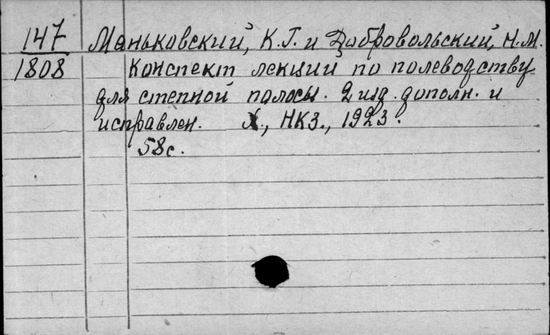 147 Маньковский, К.Г. и Добровольский, Н.М.
1808 Конспект лекций по полеводству
для степной полосы. 2 изд. дополн. и
исправлен. Х., НКЗ., 1923.
58 с.